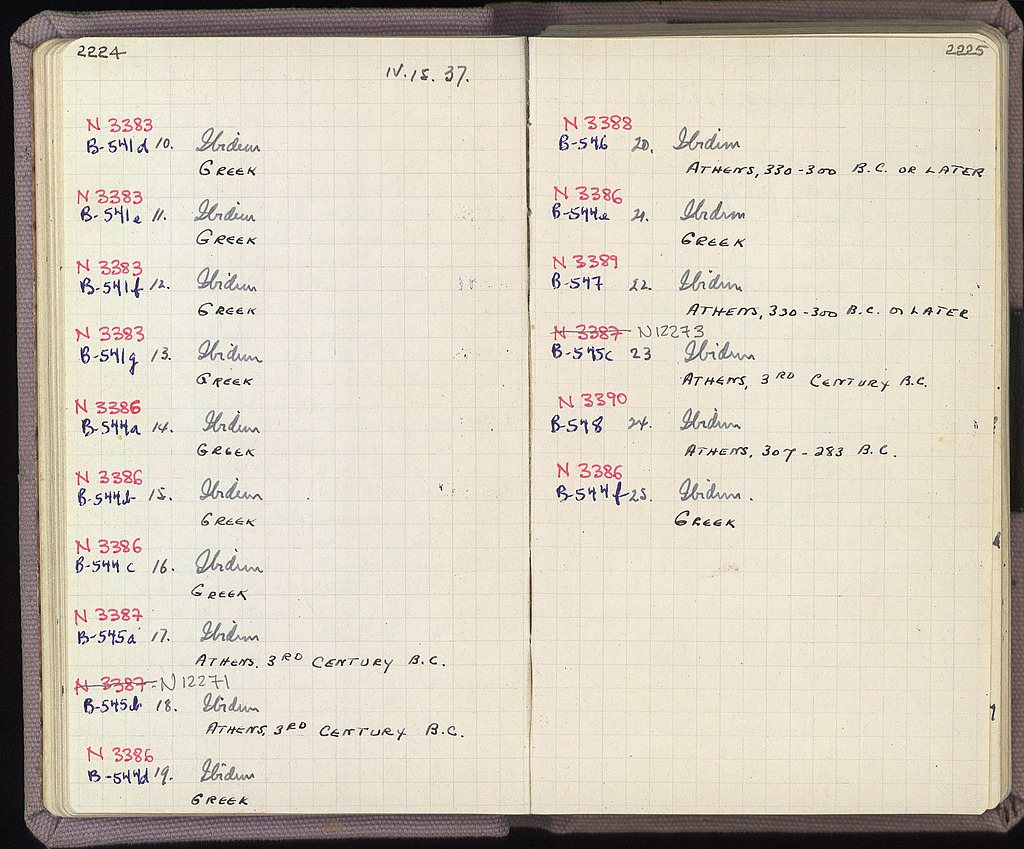 2224
IV.15.37.
N 3383
B-541d 10. Ibidem
GREEK
N 3383
B-541e 11. Ibidem
GREEK
N 3383
B-541f 12. Ibidem
GREEK
N 3383
B-541g 13. Ibidem
GREEK
N 3386
B-544a 14. Ibidem
GREEK
N 3386
B-544b 15. Ibidem
GREEK
N 3386
B-544c 16. Ibidem
GREEK
N 3387
B-545a 17. Ibidem
ATHENS, 3RD CENTURY B.C.
N 3387 - N12271
B-545b 18. Ibidem
ATHENS, 3RD CENTURY B.C.
N 3386
B-544d 19. Ibidem
GREEK
2225
N 3388
B-546 20. Ibidem
ATHENS, 330-300 B.C. OR LATER
N 3386
B-544e 21. Ibidem
GREEK
N 3389
B-547 22. Ibidem
ATHENS, 330-300 B.C. OR LATER
N 3387 N12273
B-545c 23 Ibidem
ATHENS, 3RD CENTURY B.C.
N 3390
B-548 24. Ibidem
ATHENS, 307-283 B.C.
N 3386
B-544f 25. Ibidem.
GREEK